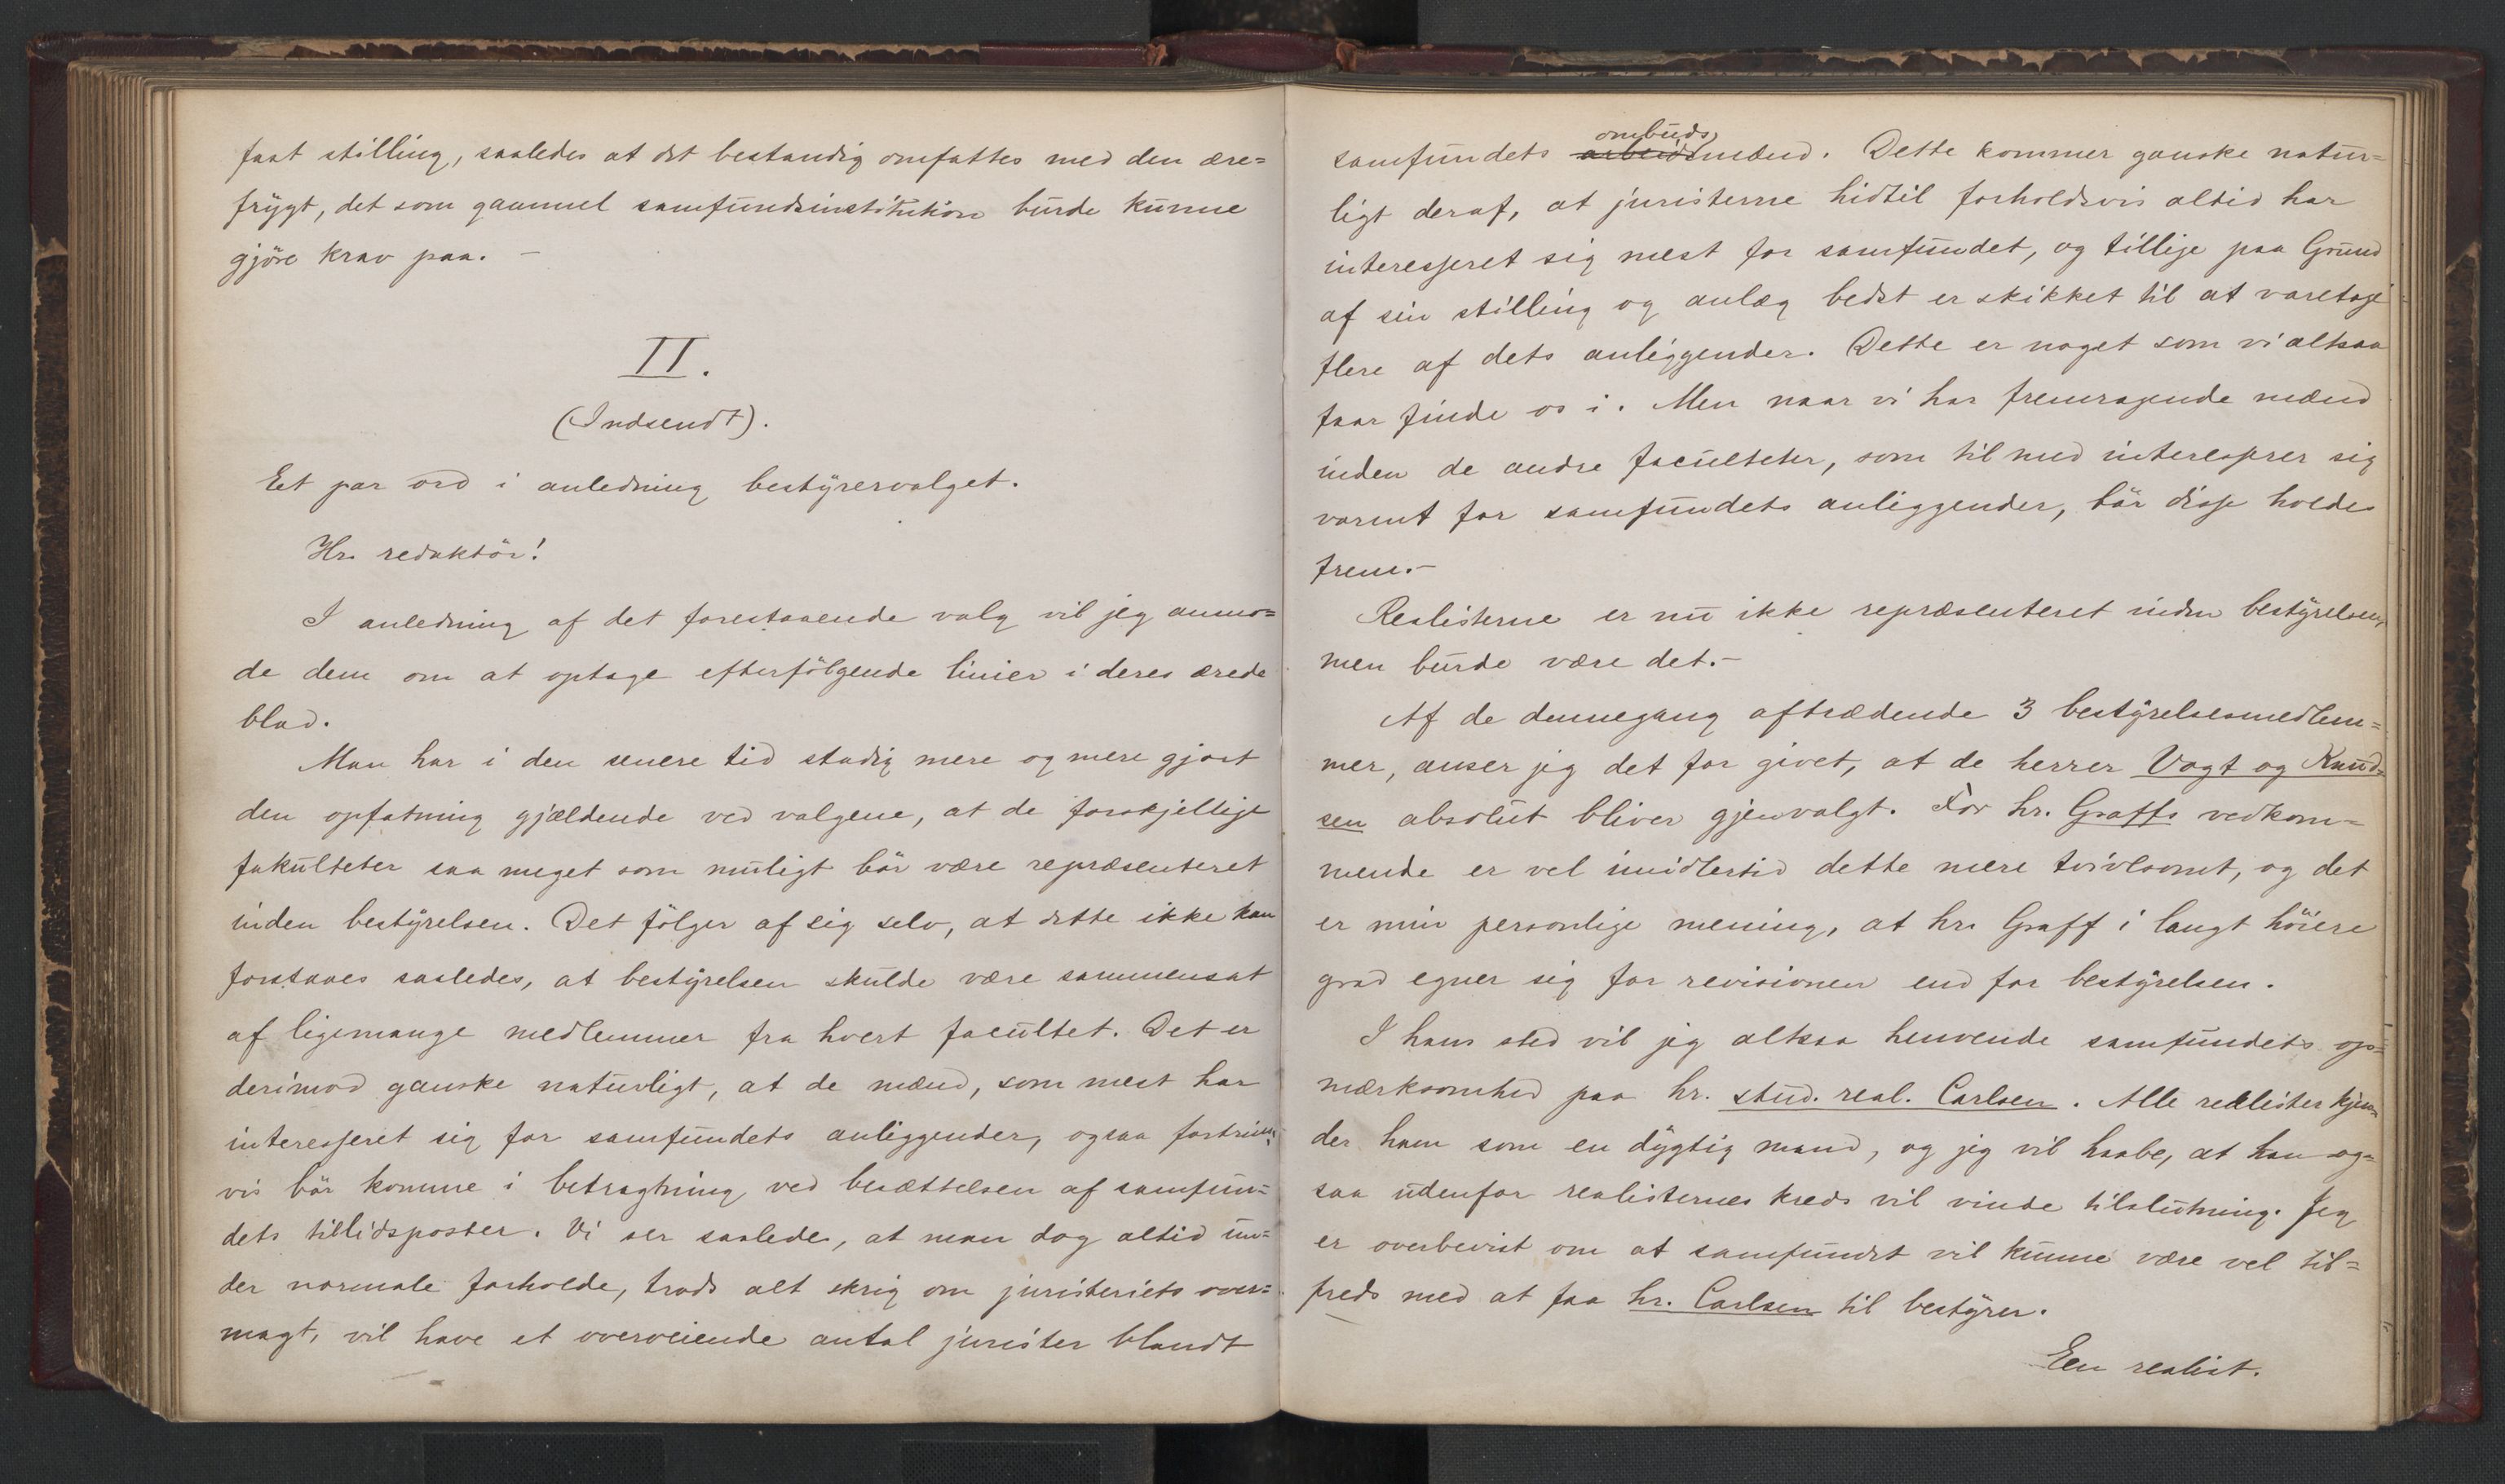 faat stilling, saaledes at det bestandig omfattes med den ære=
frygt, det som gammel samfundsinstitution burde kunne
gjöre krav paa. –
II.
(Indsendt).
Et par ord i anledning bestyrervalget.
Hr. redaktör!
I anledning af det forestaaende valg vil jeg anmo=
de dem om at optage efterfölgende linier i deres ærede
blad.
Man har i den senere tid stadig mere og mere gjort
den opfatning gjældende ved valgene, at de forskjellige
fakulteter saa meget som muligt bör være repræsenteret
inden bestyrelsen. Det fölger af sig selv, at dette ikke kan
forstaaes saaledes, at bestyrelsen skulde være sammensat
af ligemange medlemmer fra hvert facultet. Det er
derimod ganske naturligt, at de mænd, som mest har
interesseret sig for samfundets anliggender, ogsaa fortrins=
vis bör komme i betragtning ved besættelsen af samfun=
dets tillidsposter. Vi ser saaledes, at man dog altid un=
der normale forholde, trods alt skrig om juristeriets over=
magt, vil have et overveiende antal jurister blandt
samfundets arbeids ombudsmænd. Dette kommer ganske natur=
ligt deraf, at juristerne hidtil forholdsvis altid har
interesseret sig mest for samfundet, og tillige paa Grund
af sin stilling og anlæg bedst er skikket til at varetage
flere af dets anliggender. Dette er noget som vi altsaa
faar finde os i. Men naar vi har fremragende mænd
inden de andre faculteter, som til med interesserer sig
varmt for samfundets anliggender, bör disse holdes
frem.–
Realisterne er nu ikke repræsenteret inden bestyrelsen,
men burde være det.–
Af de dennegang aftrædende 3 bestyrelsesmedlem=
mer, anser jeg det for givet, at de herrer Vogt og Knud=
sen absolut bliver gjenvalgt. For hr. Graffs vedkom=
mende er vel imidlertid dette mere tvivlsomt, og det
er min personlige mening, at hr. Graff i langt höiere
grad egner sig for revisionen end for bestyrelsen.
I hans sted vil jeg altsaa henvende samfundets op=
mærksomhed paa hr. stud. real. Carlsen. Alle realister kjen=
der ham som en dygtig mand, og jeg vil haabe, at han og=
saa udenfor realisternes kreds vil vinde tilslutning. Jeg
er overbevist om at samfundet vil kunne være vel til=
freds med at faa hr. Carlsen til bestyrer.
Een realist.